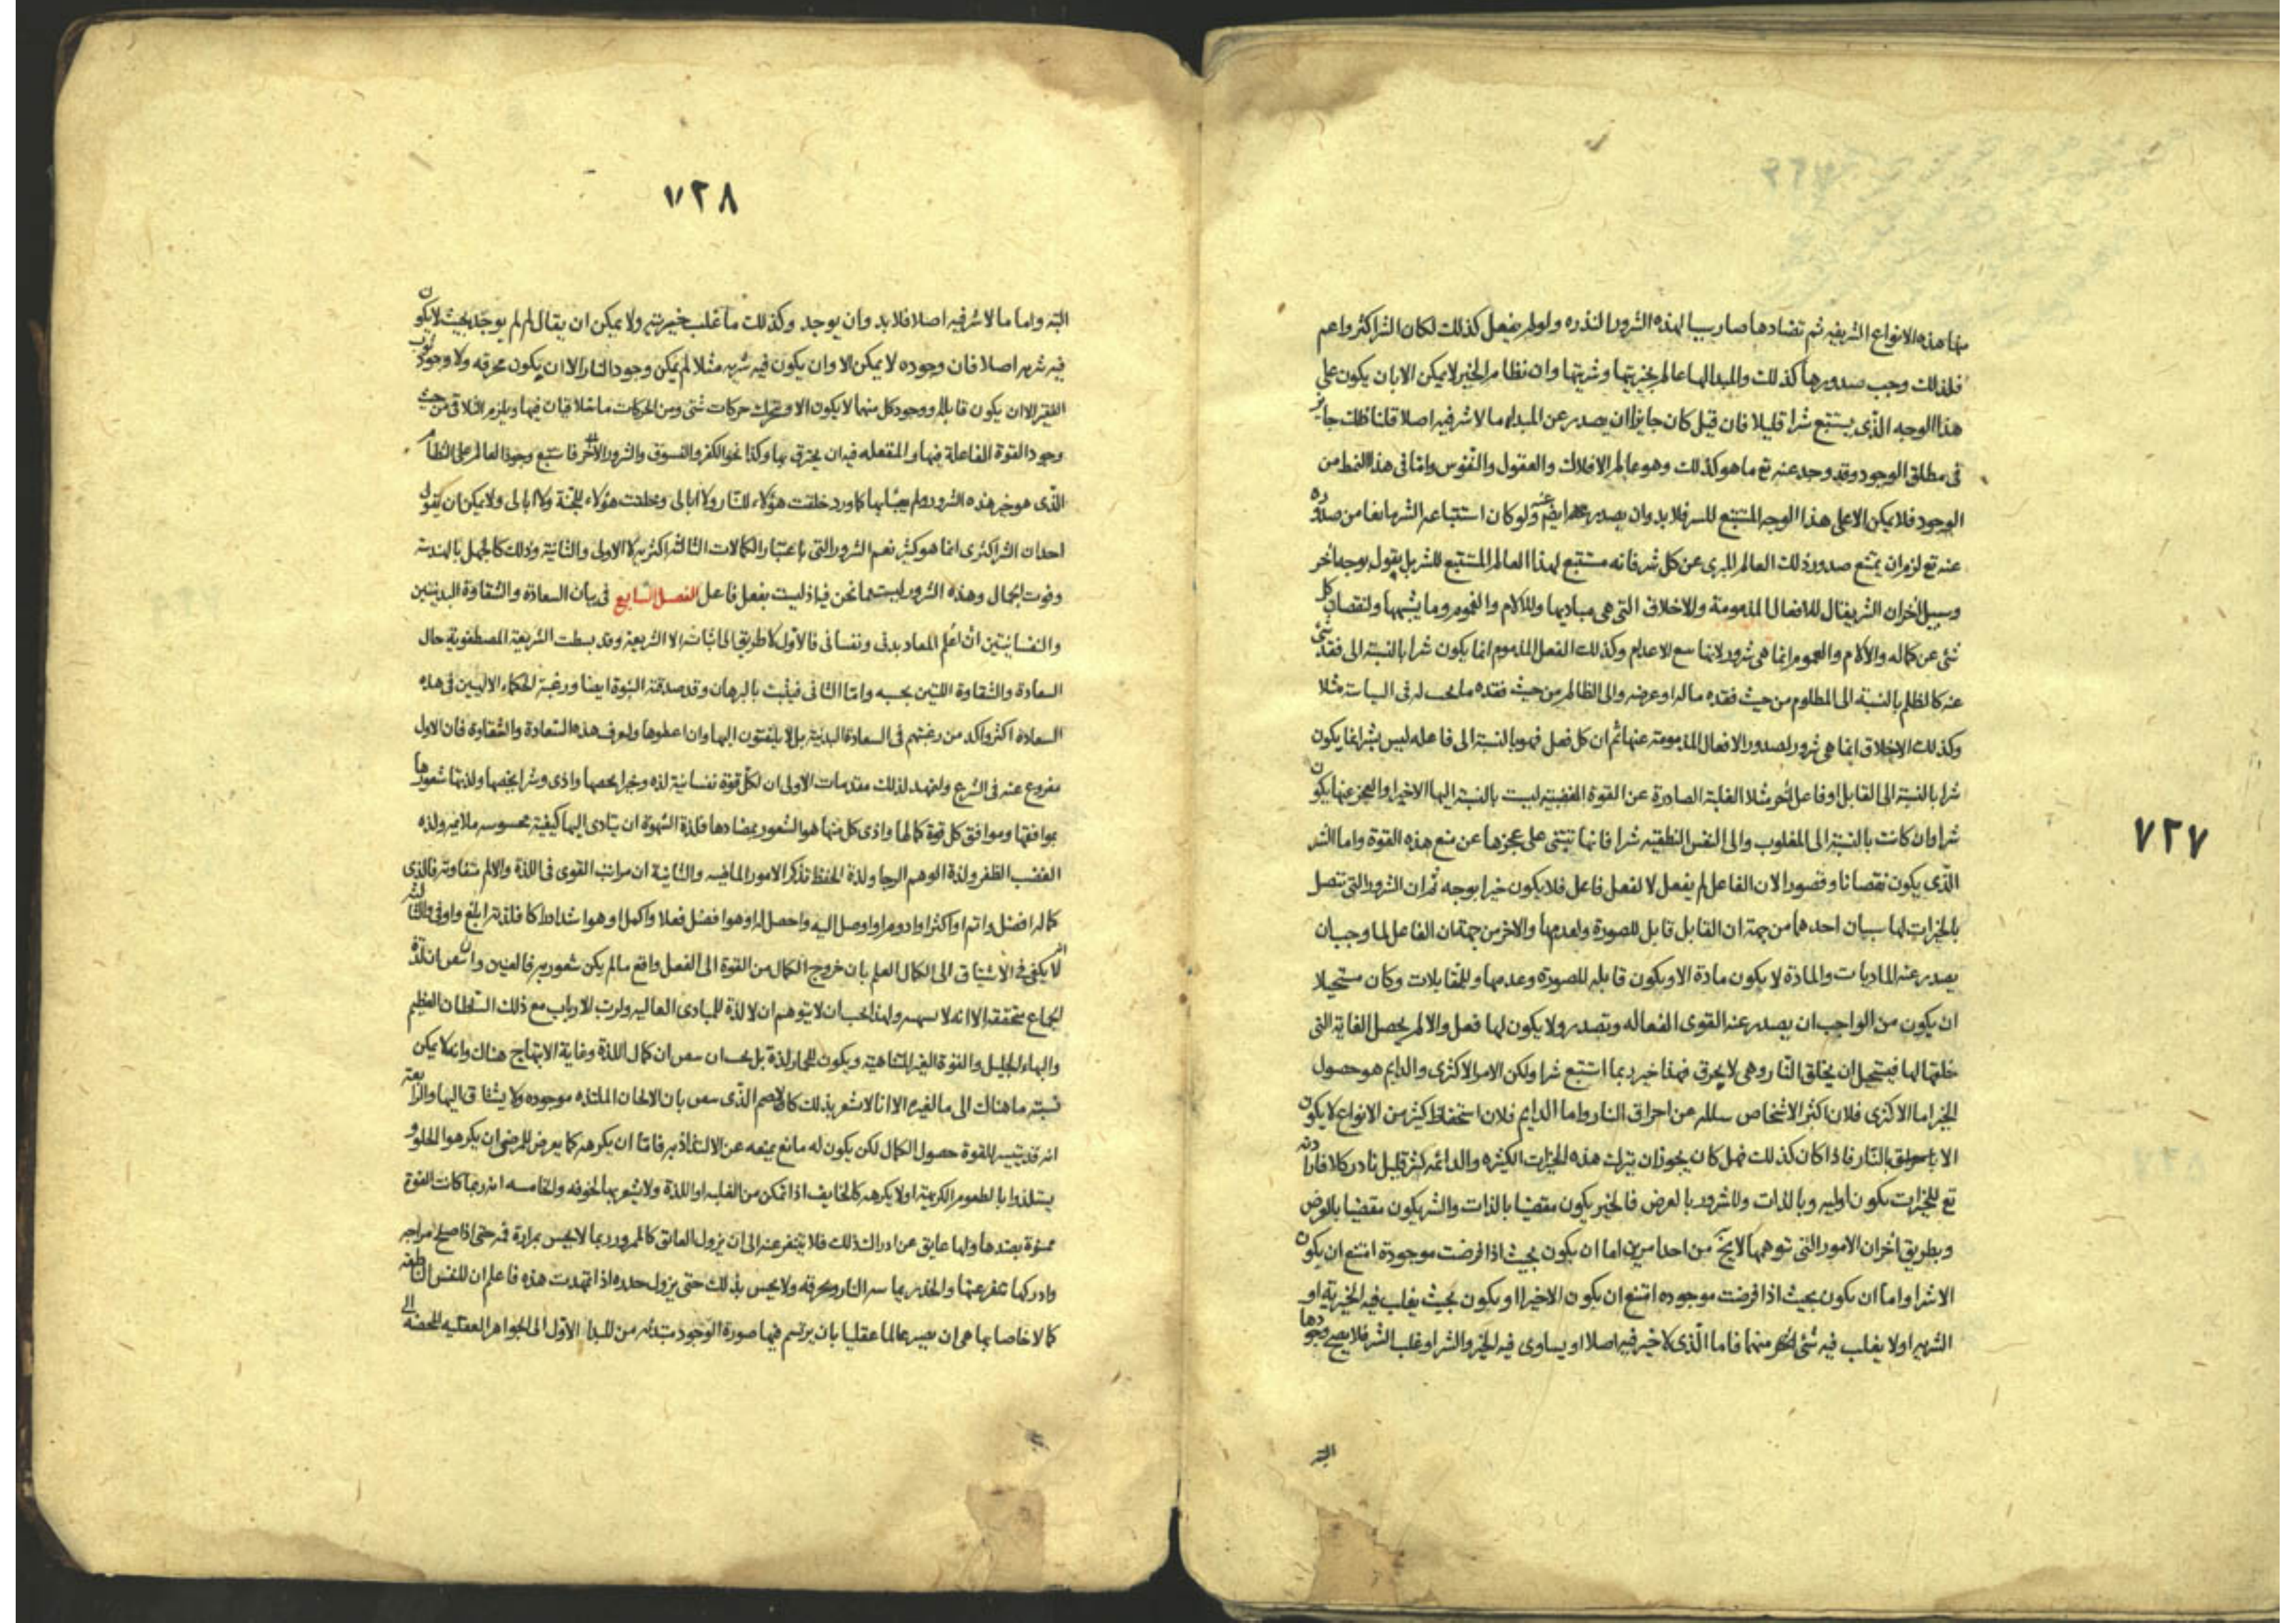 منها هذه الانواع الشريفه ثم تضادها صار سببا لهذه الشرور النذره ولو لم يفعل كذلك لكان الشر اكثر واعم
فلذلك وجب صدورها كذلك والمبدا لها عالم بخيريتها وشريتها وان نظام الخير لا يمكن الا بان يكون على
هذا الوجه الذى يستتبع شرا قليلا فان قيل كان جايزا ان يصدر عن المبداء ما لا شر فيه اصلا قلنا ذلك جايز
فى مطلق الوجود وقد وجد عنه تع ما هو كذلك وهو عالم الافلاك والعقول والنفوس واما فى هذا النمط من
الوجود فلا يمكن الا على هذا الوجه المستتبع للشر فلا بد وان يصدر عنه ايضم ولو كان استتباعه الشر مانعا من صدوره
عنه تع لزم ان يمتنع صدور ذلك العالم المبرى عن كل شر فانه مستتبع لهذا العالم المستتبع للشر بل يقول بوجه اخر
وسبيل اخر ان الشر يقال للافعال المذمومة وللاخلاق التى هى مباديها وللالام والغموم وما يشبهها ولنقصان كل
شئ عن كماله والالام والغموم انما هى شرور لانها مع الاعدام وكذلك الفعل المذموم انما يكون شرا بالنسبة الى فقد شئ
عنه كالظلم بالنسبة الى المظلوم من حيث فقده ماله او عرضه والى الظالم من حيث فقده ما يجب له فى السياسة مثلا
وكذلك الاخلاق انما هى شرور لصدور الافعال المذمومة عنها ثم ان كل فعل فهو بالنسبة الى فاعله ليس بشر انما يكون
شرا بالنسبة الى القابل او فاعل اخر مثلا الغلبة الصادرة عن القوة الغضبية ليست بالنسبة اليها الا خيرا والعجز عنها يكون
شرا وان كانت بالنسبة الى المغلوب والى النفس النطقيه شرا فانها تبتنى على عجزها عن منع هذه القوة واما الشر
الذى يكون نقصانا وقصورا لان الفاعل لم يفعل لا لفعل فاعل فلا يكون خيرا بوجه ثم ان الشرور التى تتصل
بالخيرات لها سببان احدهما من جهة ان القابل قابل للصورة ولعدمها والاخر من جهة ان الفاعل لما وجب ان
يصدر عنه الماديات والمادة لا يكون مادة الا ويكون قابله للصورة وعدمها وللمتقابلات وكان مستحيلا
ان يكون من الواجب ان يصدر عنه القوى الفعاله وتصدر ولا يكون لها فعل والا لم يحصل الغاية التى
خلقها لها فيستحيل ان يخلق النار وهى لا يحرق فهذا خير ربما استتبع شرا ولكن الامر الاكثرى والدايم هو حصول
الخير اما الاكثرى فلان اكثر الاشخاص سالمه عن احراق النار واما الدايم فلان استحفاظ كثير من الانواع لا يكون
الا باحراق النار فاذا كان كذلك فهل كان يجوز ان يترك هذه الخيرات الكثيره والدائمه لشر قليل نادر كلا فارادته
تع للخيرات يكون اوليه وبالذات وللشرور بالعرض فالخير يكون مقضيا بالذات والشر يكون مقضيا بالعرض
وبطريق اخر ان الامور التى توهمها لا يخ من احد امرين اما ان يكون بحيث اذا فرضت موجودة امتنع ان يكون
الا شرا واما ان يكون بحيث اذا فرضت موجوده امتنع ان يكون الا خيرا او يكون بحيث يغلب فيه الخيرية او
الشريه او لا يغلب فيه شئ منهما فاما الذى لا خير فيه اصلا او يساوى فيه الخير والشر او غلب الشر فلا يصح وجودها
البته
٧٢٧
٧٢٨
البته واما ما لا شر فيه اصلا فلا بد وان يوجد وكذلك ما غلب خيريته ولا يمكن ان يقال لم لم يوجد بحيث لا يكون
فيه شريه اصلا فان وجوده لا يمكن الا وان يكون فيه شريه مثلا لم يمكن وجود النار الا ان يكون محرقه ولا وجود ثوب
الفقير الا ان يكون قابله ووجود كل منهما لا يكون الا ويتحرك حركات شتى ومن الحركات ما يتلاقيان فيها ويلزم التلاقى من حيث
وجود القوة الفاعلة فيها والمنفعله فيه ان يحترق بها وكذا نحو الكفر والفسوق والشرور الاخر فاستتبع وجود العالم على النظام
الذى هو خير هذه الشرور ولم يعبأ بها كما ورد خلقت هؤلاء للنار ولا ابالى وخلقت هؤلاء للجنة ولا ابالى ولا يمكن ان يقول
احد ان الشر اكثرى انما هو كثير نعم الشرور التى باعتبار الكمالات الثالثه اكثريه لا الاولى والثانية وذلك كالجهل بالهندسة
وفوت الجمال وهذه الشرور ليست مما نحن فيه اذ ليست بفعل فاعل الفصل السابع فى بيان السعادة والشقاوة البدنيتين
والنفسانيتين اعلم ان المعاد بدنى ونفسانى فالاول لا طريق الى اثباته الا الشريعة وقد بسطت الشريعة المصطفوية حال
السعادة والشقاوة اللتين بحسبه واما الثانى فيثبت بالبرهان وقد صدقته النبوة ايضا ورغبة الحكماء الالهيين فى هذه
السعادة اكثر واكد من رغبتهم فى السعادة البدنية بل لا يلتفتون اليها وان اعطوها ولنعرف هذه السعادة والشقاوة فان الاول
مفروغ عنه فى الشرع ولنمهد لذلك مقدمات الاولى ان لكل قوة نفسانية لذه وخيرا يخصها واذى وشرا يخصها ولذتها شعورها
بموافقها وموافق كل قوة كمالها واذى كل منها هو الشعور بمضادها فلذة الشهوة ان يتادى اليها كيفية محسوسه ملائمه ولذه
الغضب الظفر ولذة الوهم الرجا ولذة الحفظ تذكر الامور الماضيه والثانية ان مراتب القوى فى اللذة والالم متفاوته فالذى
كماله افضل واتم او اكثر او ادوم او اوصل اليه واحصل له او هو افضل فعلا واكمل او هو اشد ادراكا فلذته ابلغ واوفى والثالثه
انه لا يكفى فى الاشتياق الى الكمال العلم بان خروج الكمال من القوة الى الفعل واقع ما لم يكن شعور به فالعنين وان تيقن ان لذة
الجماع متحققه الا انه لا يشتهيه ولهذا يجب ان لا يتوهم ان لا لذة للمبادى العاليه ولرب الارباب مع ذلك السلطان العظيم
والبهاء الجليل والقوة الغير المتناهية ويكون للحمار لذة بل يجب ان يتيقن ان كمال اللذة وغاية الابتهاج هناك وانه لا يمكن
نسبة ما هناك الى ما لغيره الا انا لا نشعر بذلك كالاصم الذى يتيقن بان الالحان الملذه موجوده ولا يشتاق اليها والرابعه
انه قد يتيسر للقوة حصول الكمال لكن يكون له مانع يمنعه عن الالتذاذ به فاما ان يكرهه كما يعرض للمرضى ان يكرهوا الحلو و
يستلذوا بالطعوم الكريهة او لا يكرهه كالخايف اذا تمكن من الغلبه او اللذة ولا يشعر بها لخوفه والخامسه انه ربما كانت القوة
ممنوة بضدها ولها عايق عن ادراك ذلك فلا يتنفر عنه الى ان يزول العائق كالممرور ربما لا يحس بمرارة فمه حتى اذا صلح مزاجه
وادركها نفر عنها والخدر ربما مسه النار ومحرقه ولا يحس بذلك حتى يزول خدره اذا تمهدت هذه فاعلم ان للنفس الناطقه
كمالا خاصا بها هى ان يصير عالما عقليا بان يرتسم فيها صورة الوجود مبتدئه من المبدا الاول الى الجواهر العقليه المحضه الى